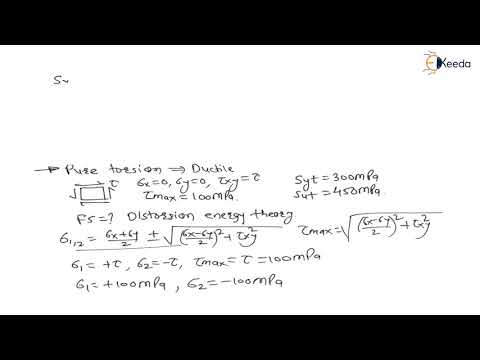 Ekeeda
S
→ Pure torsion ⇒ Ductile
τ 6x=0, 6y=0, τxy=τ Syt = 300mpa
τmax = 100mpa. Sut = 450mpa.
FS=? Distorsion energy theory.
6₁/₂ = 6x+6y/2 ± √(6x-6y/2)²+τxy² τmax = √(6x-6y/2)²+τxy²
6₁ = +τ, 6₂=-τ, τmax= τ =100mpa
6₁=+100mpa, 6₂=-100mpa